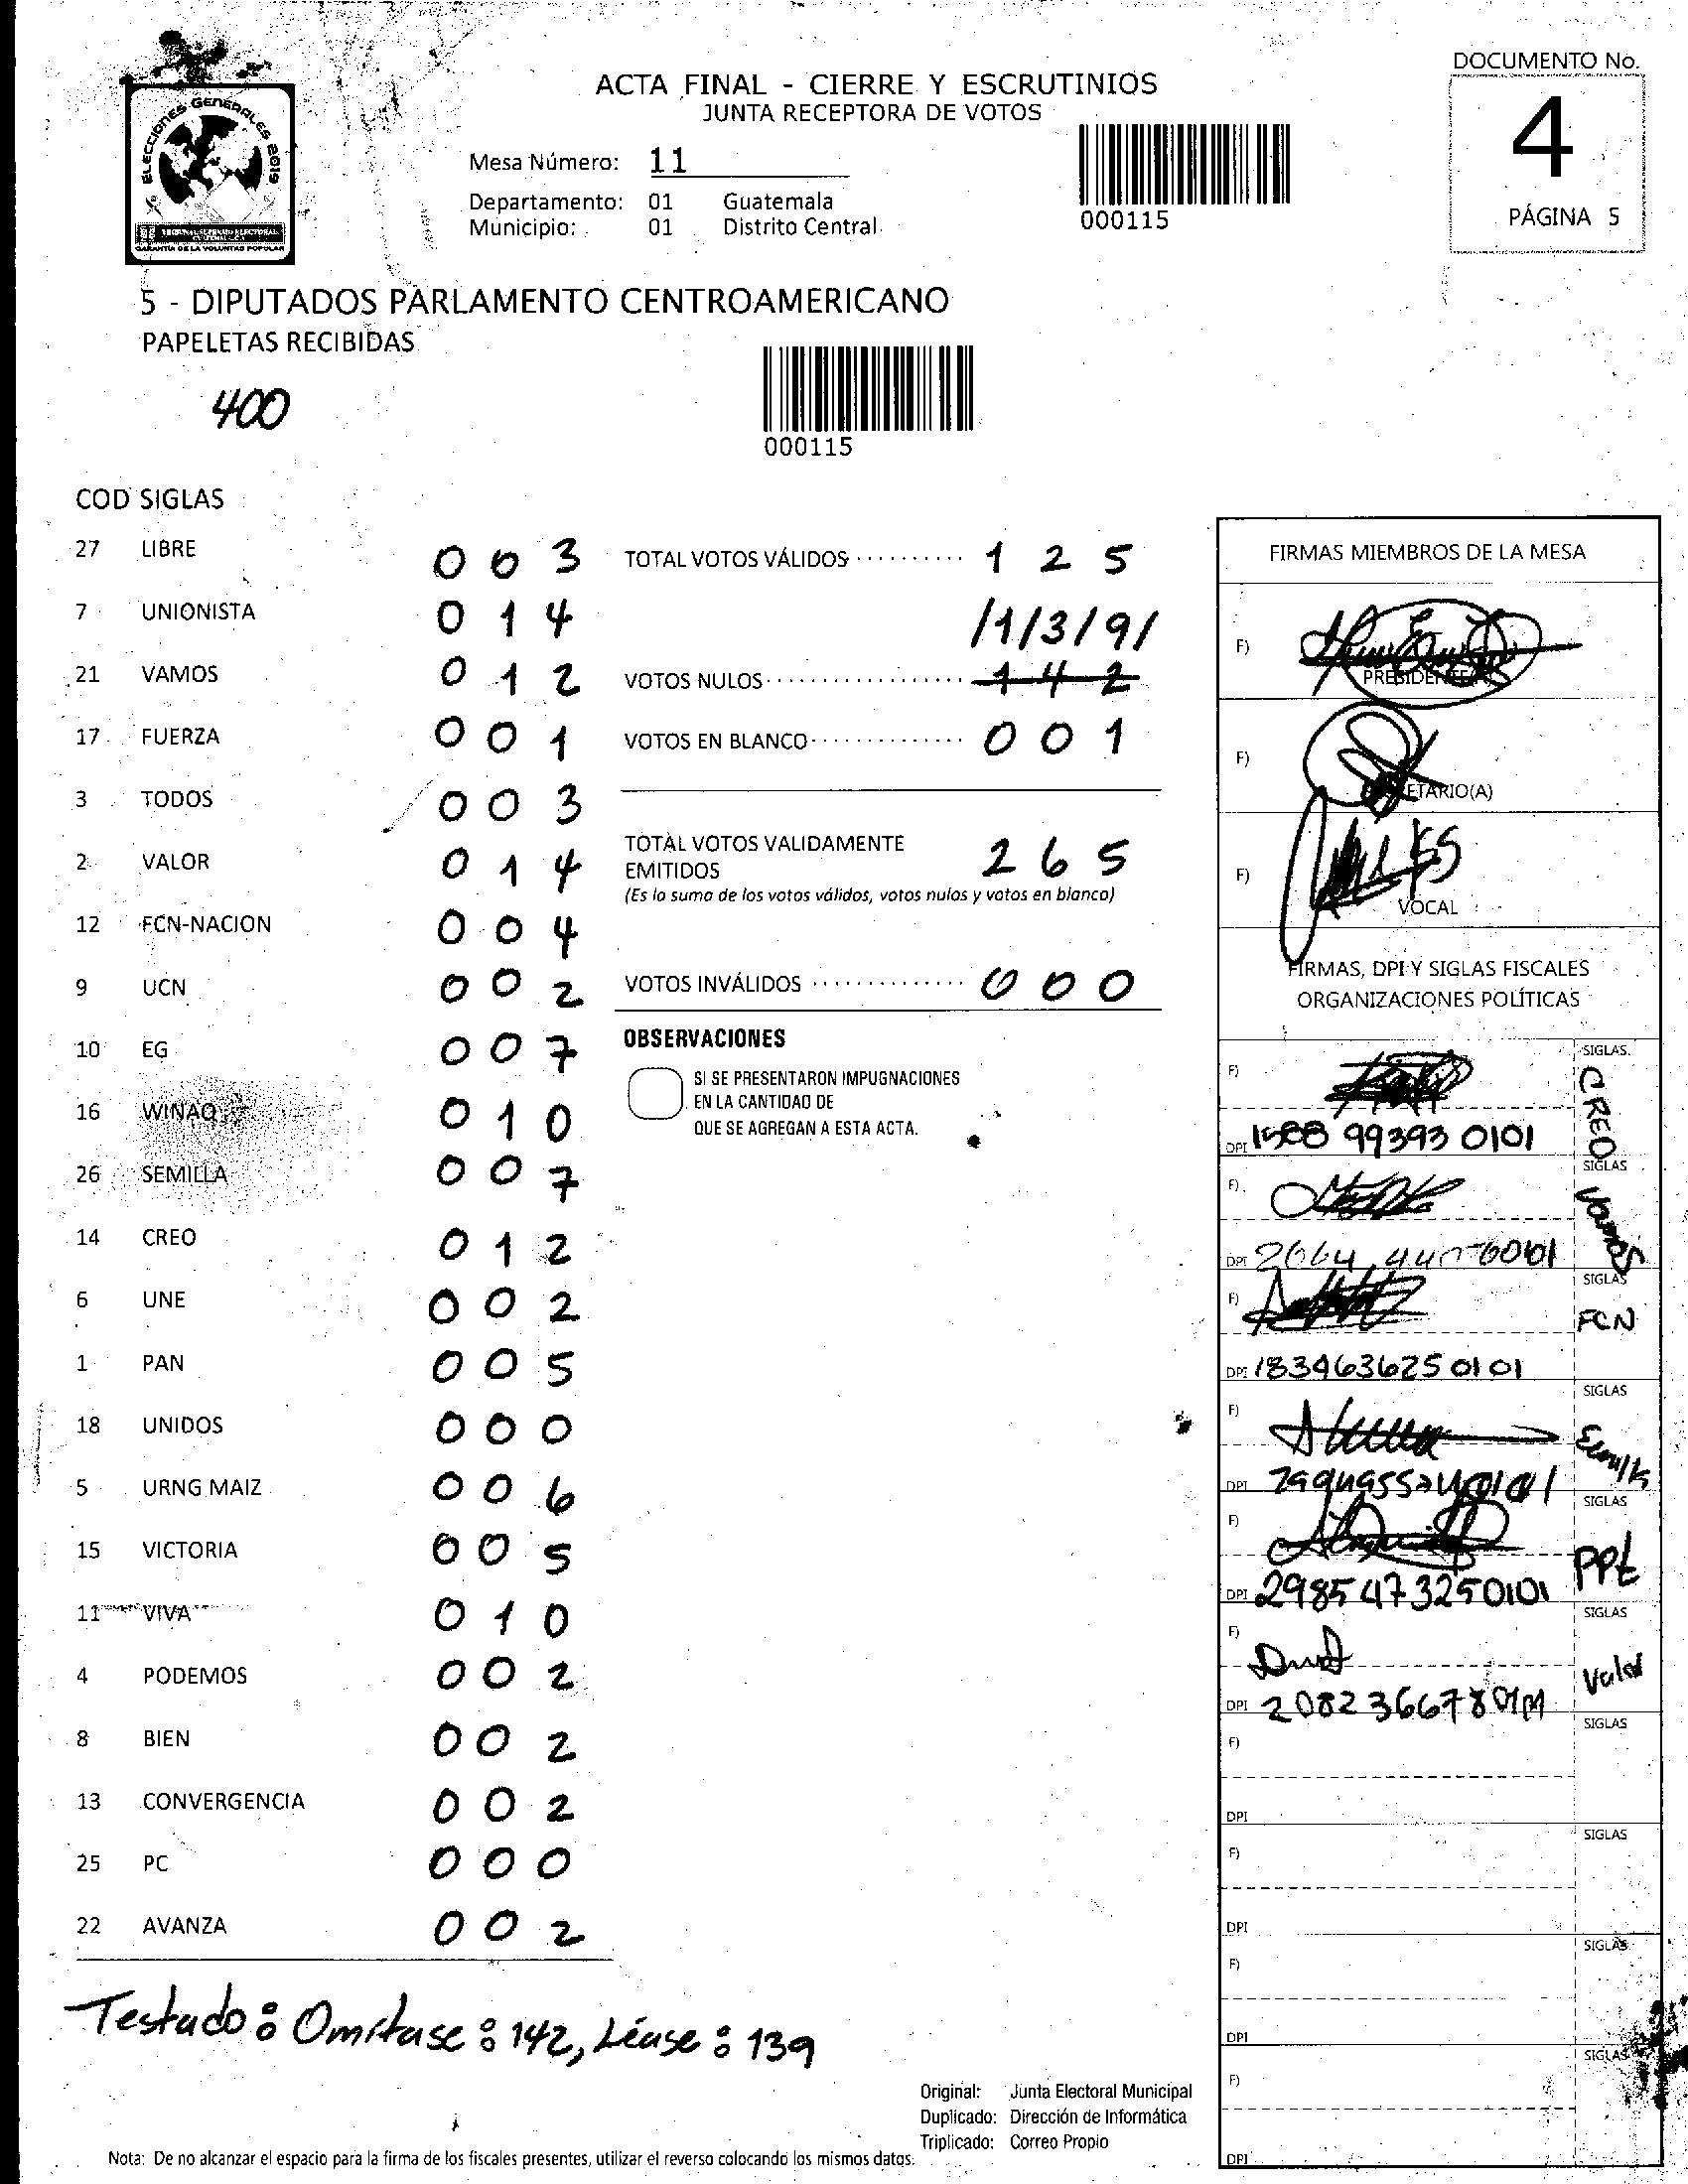 ELECCIONES GENERALES 2019
TRIBUNAL SUPREMO ELECTORAL
GARANTÍA DE LA VOLUNTAD POPULAR
ACTA FINAL - CIERRE Y ESCRUTINIOS
JUNTA RECEPTORA DE VOTOS
Mesa Número: 11
Departamento: 01 Guatemala
Municipio: 01 Distrito Central
000115
DOCUMENTO No.
4
PÁGINA 5
5 - DIPUTADOS PARLAMENTO CENTROAMERICANO
PAPELETAS RECIBIDAS
400
000115
COD SIGLAS
27 LIBRE 0 0 3
7 UNIONISTA 0 1 4
21 VAMOS 0 1 2
17 FUERZA 0 0 1
3 TODOS 0 0 3
2 VALOR 0 1 4
12 FCN-NACION 0 0 4
9 UCN 0 0 2
10 EG 0 0 7
16 WINAQ 0 1 0
26 SEMILLA 0 0 7
14 CREO 0 1 2
6 UNE 0 0 2
1 PAN 0 0 5
18 UNIDOS 0 0 0
5 URNG MAIZ 0 0 6
15 VICTORIA 0 0 5
11 VIVA 0 1 0
4 PODEMOS 0 0 2
8 BIEN 0 0 2
13 CONVERGENCIA 0 0 2
25 PC 0 0 0
22 AVANZA 0 0 2
TOTAL VOTOS VÁLIDOS 1 2 5
/1/3/9/
VOTOS NULOS 1 4 2
VOTOS EN BLANCO 0 0 1
TOTAL VOTOS VALIDAMENTE
EMITIDOS 2 6 5
(Es la suma de los votos válidos, votos nulos y votos en blanco)
VOTOS INVÁLIDOS 0 0 0
OBSERVACIONES
SI SE PRESENTARON IMPUGNACIONES
EN LA CANTIDAD DE
QUE SE AGREGAN A ESTA ACTA.
FIRMAS MIEMBROS DE LA MESA
F)
PRESIDENTE(A)
F)
SECRETARIO(A)
F)
VOCAL
FIRMAS, DPI Y SIGLAS FISCALES
ORGANIZACIONES POLÍTICAS
F) SIGLAS
CREO
DPI 1588 99393 0101
F) SIGLAS
Vamos
DPI
F) SIGLAS
FCN
DPI 1834636250101
F) SIGLAS
DPI
F) SIGLAS
PPt
DPI 2985473250101
F) SIGLAS
Valor
DPI
F) SIGLAS
DPI
F) SIGLAS
DPI
F) SIGLAS
DPI
F) SIGLAS
DPI
Testado: Omitase: 142, Léase: 139
Original: Junta Electoral Municipal
Duplicado: Dirección de Informática
Triplicado: Correo Propio
Nota: De no alcanzar el espacio para la firma de los fiscales presentes, utilizar el reverso colocando los mismos datos.